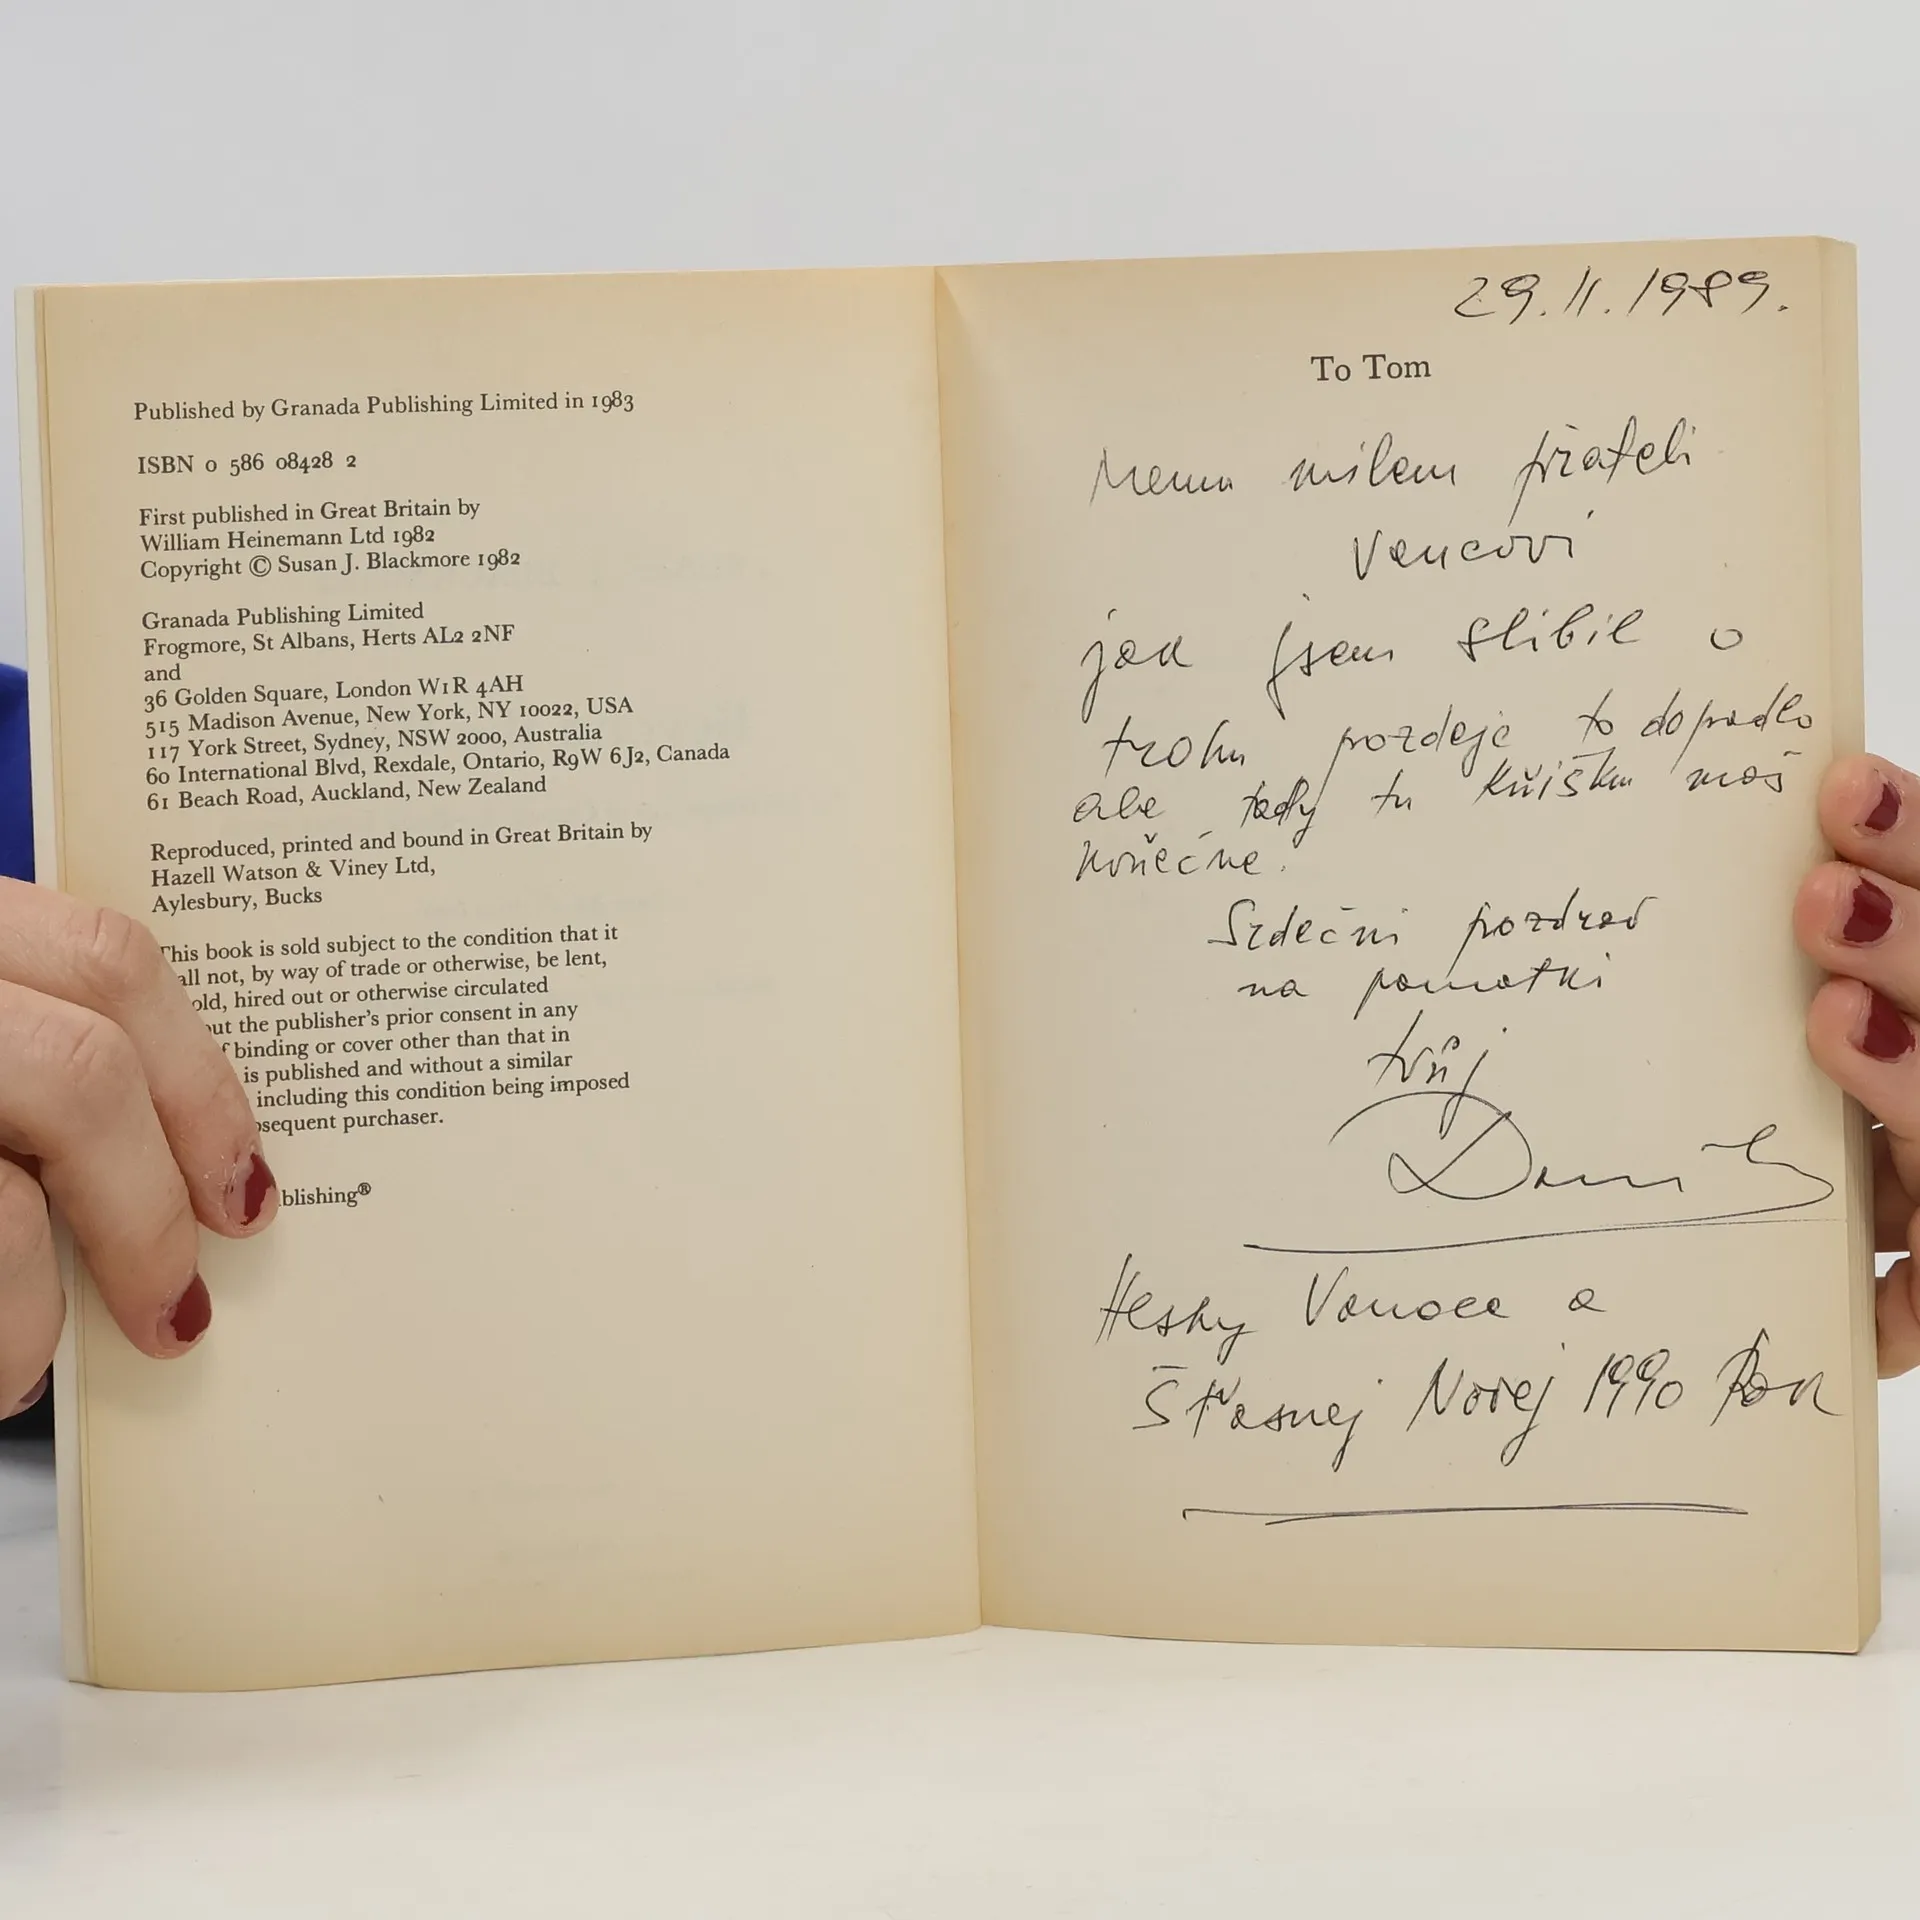 Published by Granada Publishing Limited in 1983
ISBN 0 586 08428 2
First published in Great Britain by
William Heinemann Ltd 1982
Copyright © Susan J. Blackmore 1982
Granada Publishing Limited
Frogmore, St Albans, Herts AL2 2NF
and
36 Golden Square, London W1R 4AH
515 Madison Avenue, New York, NY 10022, USA
117 York Street, Sydney, NSW 2000, Australia
60 International Blvd, Rexdale, Ontario, R9W 6J2, Canada
61 Beach Road, Auckland, New Zealand
Reproduced, printed and bound in Great Britain by
Hazell Watson & Viney Ltd,
Aylesbury, Bucks
This book is sold subject to the condition that it
all not, by way of trade or otherwise, be lent,
old, hired out or otherwise circulated
out the publisher's prior consent in any
f binding or cover other than that in
is published and without a similar
including this condition being imposed
bsequent purchaser.
blishing®
29.11.1989.
To Tom
Memu milem přateli
Vencovi
jak jsem slibil o
trohu pozdeje to dopadlo
ale tady tu kňišku maš
koňečne.
Srdečni pozdrav
na pamatki
tvůj
Hesky Vanoce a
Šťasnej Novej 1990 Rok